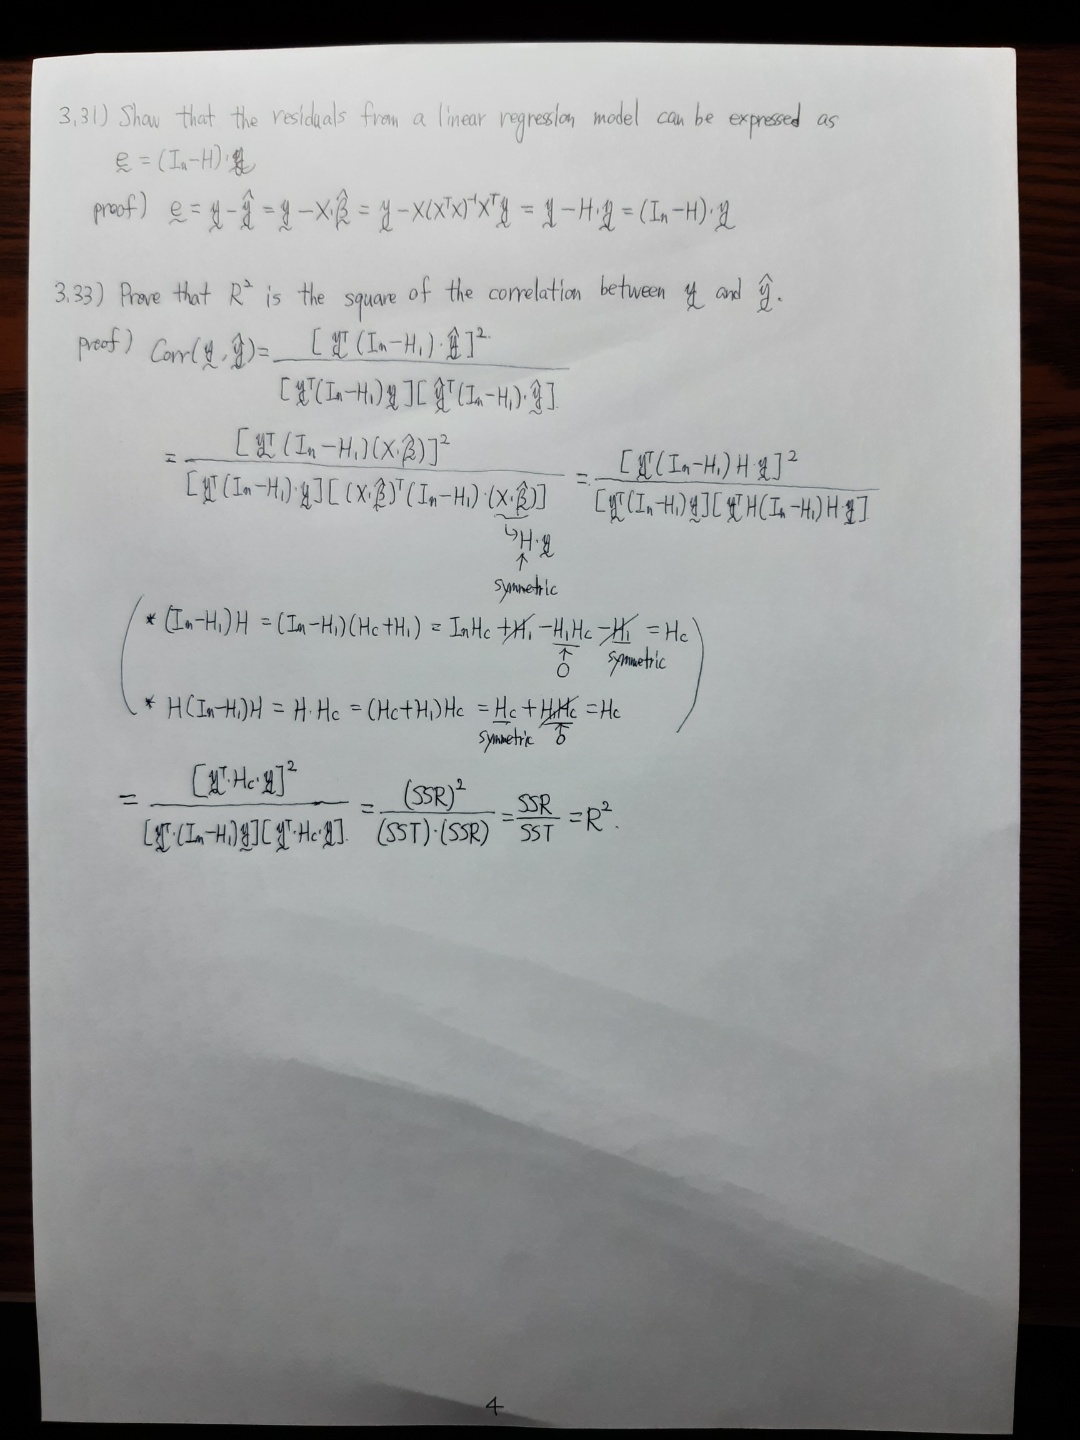 3.31) Show that the residuals from a linear regression model can be expressed as
e = (In-H)·y
proof) e = y - ŷ = y - X·β̂ = y - X(XᵀX)⁻¹Xᵀy = y - H·y = (In-H)·y
3.33) Prove that R² is the square of the correlation between y and ŷ.
proof) Corr(y, ŷ) = [yᵀ(In-H₁)·ŷ]² / [yᵀ(In-H₁)y][ŷᵀ(In-H₁)·ŷ].
= [yᵀ(In-H₁)(X·β̂)]² / [yᵀ(In-H₁)·y][(X·β̂)ᵀ(In-H₁)·(X·β̂)] = [yᵀ(In-H₁)H·y]² / [yᵀ(In-H₁)y][yᵀH(In-H₁)H·y]
↳H·y
↑
symmetric
* (In-H₁)H = (In-H₁)(Hc+H₁) = InHc + H₁ - H₁Hc - H₁ = Hc
↑ symmetric
0
* H(In-H₁)H = H·Hc = (Hc+H₁)Hc = Hc + H₁Hc = Hc
symmetric ↑
0
= [yᵀ·Hc·y]² / [yᵀ·(In-H₁)y][yᵀ·Hc·y]. = (SSR)² / (SST)·(SSR) = SSR / SST = R².
4